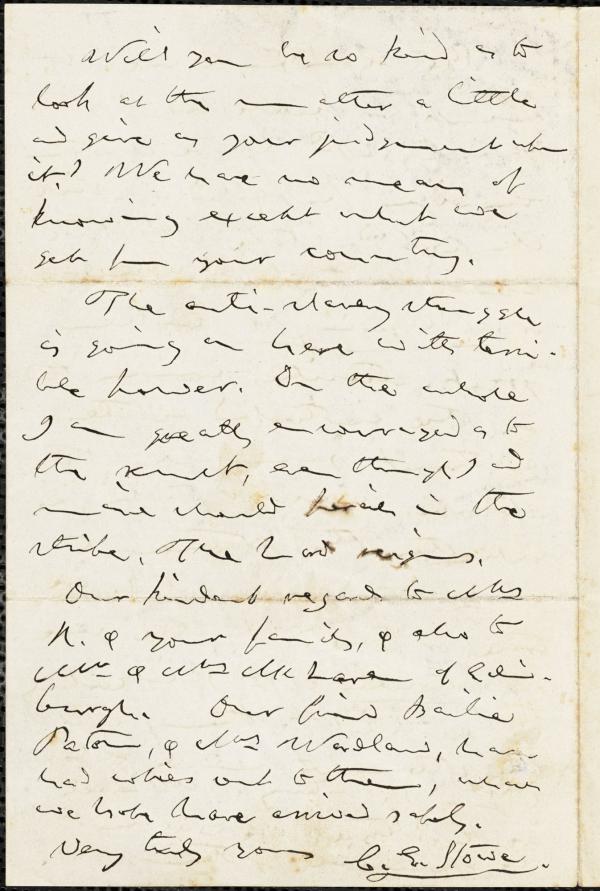 Will you be so kind as to
look at the matter a little
and give us your judgement upon
it? We have no means of
knowing except what we
get from your country.
The anti-slavery struggle
is going on here with terri-
ble power. On the whole
I am greatly encouraged as to
the result, even though I and
mine should perish in the
strife. The Lord reigns.
Our kindest regards to Mrs
R. & your family, & also to
Mr & Mrs McLaren of Edin-
burgh. Our friend Bailie
Paton, & Mrs Wardlaw, have
had copies sent to them, which
we hope have arrived safely.
Very truly yours C. E. Stowe.